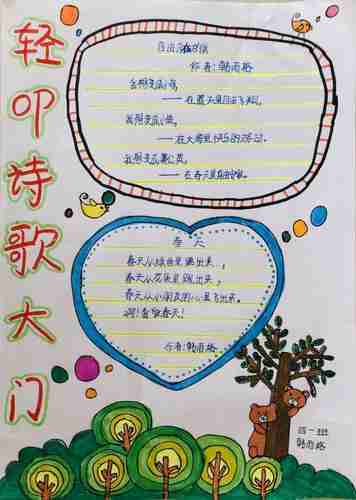 轻叩诗歌大门
作者:韩雨
我想变成小鸟,
——在蓝天里自由飞翔。
我想变成小鱼,
——在大海里快乐的游动。
我想变成蒲公英,
——在春天里
春天
春天从绿里蹦出来,
春天从花朵里跳出来,
春天从小朋友的心里飞出来。
啊!春天!
作者:韩雨
四一班
韩雨